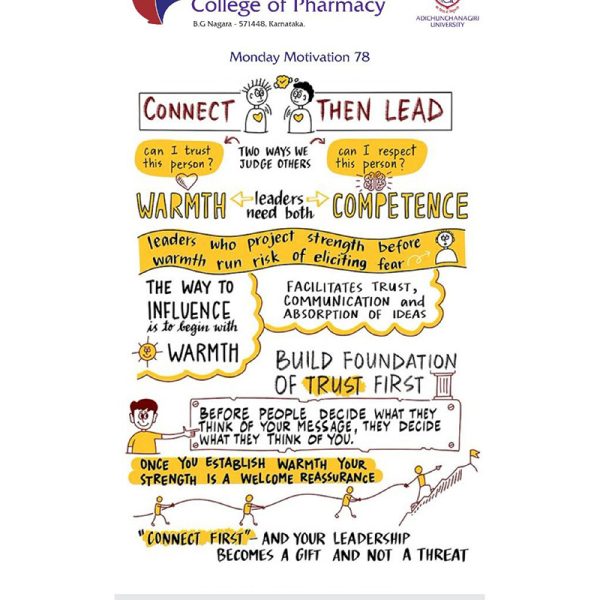 College of Pharmacy
B.G Nagara - 571448, Karnataka.
ADICHUNCHANAGIRI
UNIVERSITY
Monday Motivation 78
CONNECT THEN LEAD
can I trust
this person?
TWO WAYS WE
JUDGE OTHERS
can I respect
this person?
WARMTH
leaders
need both
COMPETENCE
leaders who project strength before
warmth run risk of eliciting fear
THE WAY TO
INFLUENCE
is to begin with
WARMTH
FACILITATES TRUST,
COMMUNICATION and
ABSORPTION OF IDEAS
BUILD FOUNDATION
OF TRUST FIRST
BEFORE PEOPLE DECIDE WHAT THEY
THINK OF YOUR MESSAGE, THEY DECIDE
WHAT THEY THINK OF YOU.
ONCE YOU ESTABLISH WARMTH YOUR
STRENGTH IS A WELCOME REASSURANCE
"CONNECT FIRST" - AND YOUR LEADERSHIP
BECOMES A GIFT AND NOT A THREAT